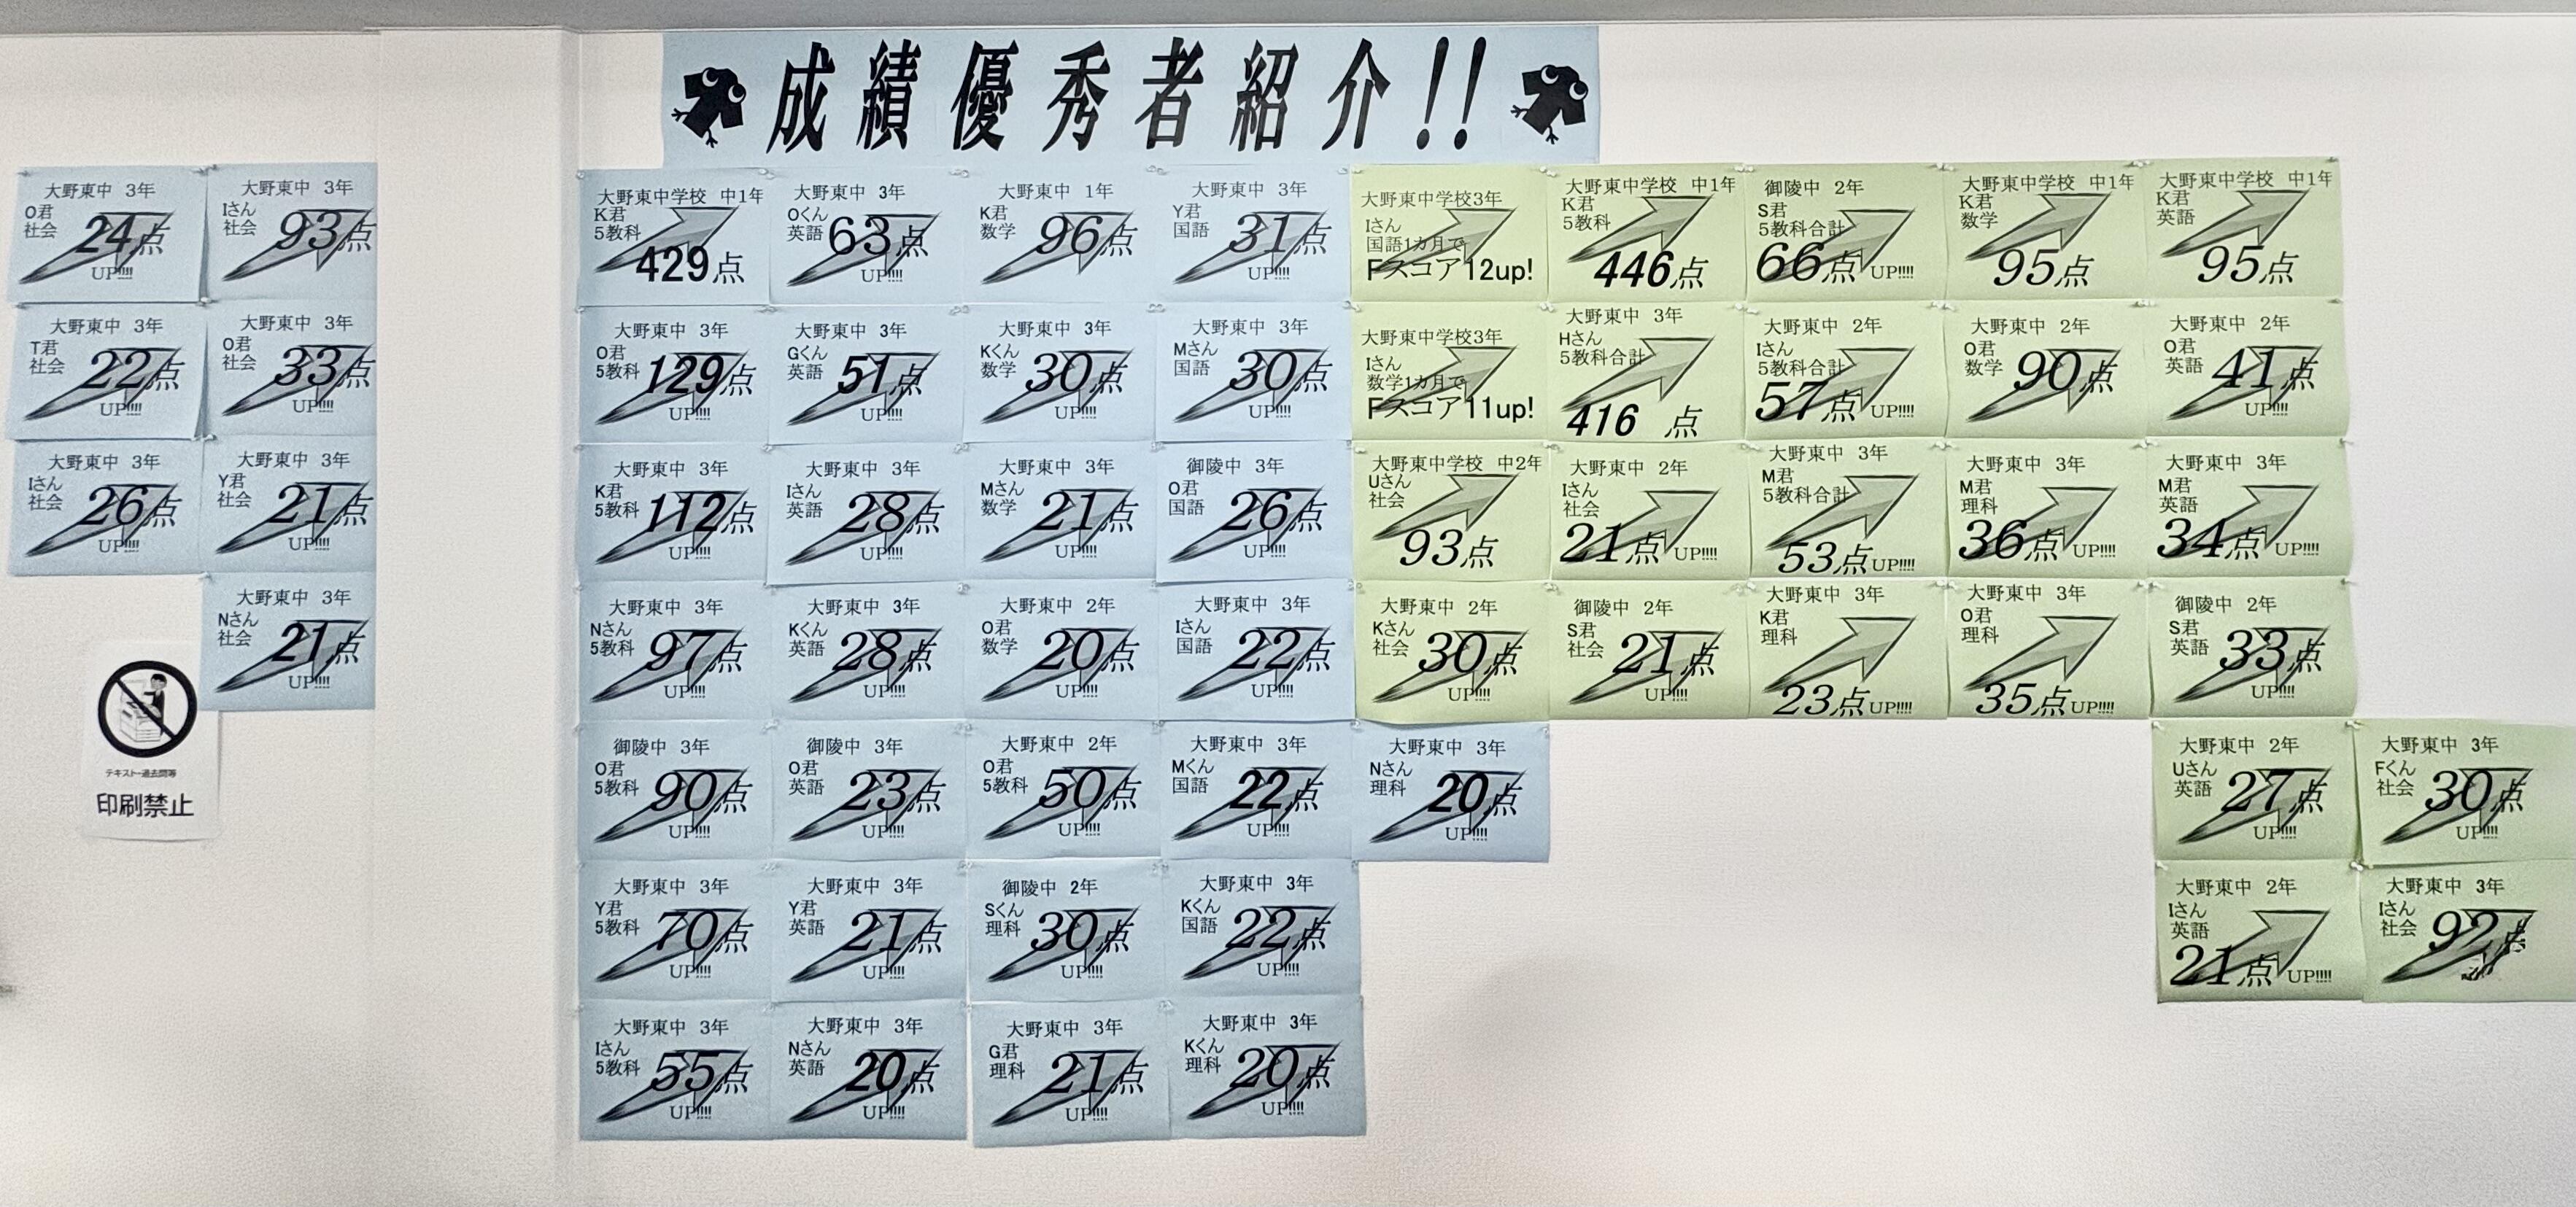 成績優秀者紹介!!
大野東中 3年
O君
社会
24点
UP!!!!
大野東中 3年
Iさん
社会
93点
大野東中 3年
T君
社会
22点
UP!!!!
大野東中 3年
O君
社会
33点
UP!!!!
大野東中 3年
Iさん
社会
26点
UP!!!!
大野東中 3年
Y君
社会
21点
UP!!!!
大野東中 3年
Nさん
社会
21点
UP!!!!
テキスト・過去問等
印刷禁止
大野東中学校 中1年
K君
5教科
429点
大野東中 3年
Oくん
英語
63点
UP!!!!
大野東中 1年
K君
数学
96点
大野東中 3年
Y君
国語
31点
UP!!!!
大野東中学校3年
Iさん
国語1カ月で
Fスコア12up!
大野東中学校 中1年
K君
5教科
446点
御陵中 2年
S君
5教科合計
66点UP!!!!
大野東中学校 中1年
K君
数学
95点
大野東中学校 中1年
K君
英語
95点
大野東中 3年
O君
5教科
129点
UP!!!!
大野東中 3年
Gくん
英語
51点
UP!!!!
大野東中 3年
Kくん
数学
30点
UP!!!!
大野東中 3年
Mさん
国語
30点
UP!!!!
大野東中学校3年
Iさん
数学1カ月で
Fスコア11up!
大野東中 3年
Hさん
5教科合計
416 点
大野東中 2年
Iさん
5教科合計
57点UP!!!!
大野東中 2年
O君
数学
90点
大野東中 2年
O君
英語
41点
UP!!!!
大野東中 3年
K君
5教科
112点
UP!!!!
大野東中 3年
Iさん
英語
28点
UP!!!!
大野東中 3年
Mさん
数学
21点
UP!!!!
御陵中 3年
O君
国語
26点
UP!!!!
大野東中学校 中2年
Uさん
社会
93点
大野東中 2年
Iさん
社会
21点UP!!!!
大野東中 3年
M君
5教科合計
53点UP!!!!
大野東中 3年
M君
理科
36点UP!!!!
大野東中 3年
M君
英語
34点UP!!!!
大野東中 3年
Nさん
5教科
97点
UP!!!!
大野東中 3年
Kくん
英語
28点
UP!!!!
大野東中 2年
O君
数学
20点
UP!!!!
大野東中 3年
Iさん
国語
22点
UP!!!!
大野東中 2年
Kさん
社会
30点
UP!!!!
御陵中 2年
S君
社会
21点
UP!!!!
大野東中 3年
K君
理科
23点UP!!!!
大野東中 3年
O君
理科
35点UP!!!!
御陵中 2年
S君
英語
33点
UP!!!!
御陵中 3年
O君
5教科
90点
UP!!!!
御陵中 3年
O君
英語
23点
UP!!!!
大野東中 2年
O君
5教科
50点
UP!!!!
大野東中 3年
Mくん
国語
22点
UP!!!!
大野東中 3年
Nさん
理科
20点
UP!!!!
大野東中 2年
Uさん
英語
27点
UP!!!!
大野東中 3年
Fくん
社会
30点
UP!!!!
大野東中 3年
Y君
5教科
70点
UP!!!!
大野東中 3年
Y君
英語
21点
UP!!!!
御陵中 2年
Sくん
理科
30点
UP!!!!
大野東中 3年
Kくん
国語
22点
UP!!!!
大野東中 2年
Iさん
英語
21点UP!!!!
大野東中 3年
Iさん
社会
92点
大野東中 3年
Iさん
5教科
55点
UP!!!!
大野東中 3年
Nさん
英語
20点
UP!!!!
大野東中 3年
G君
理科
21点
UP!!!!
大野東中 3年
Kくん
理科
20点
UP!!!!